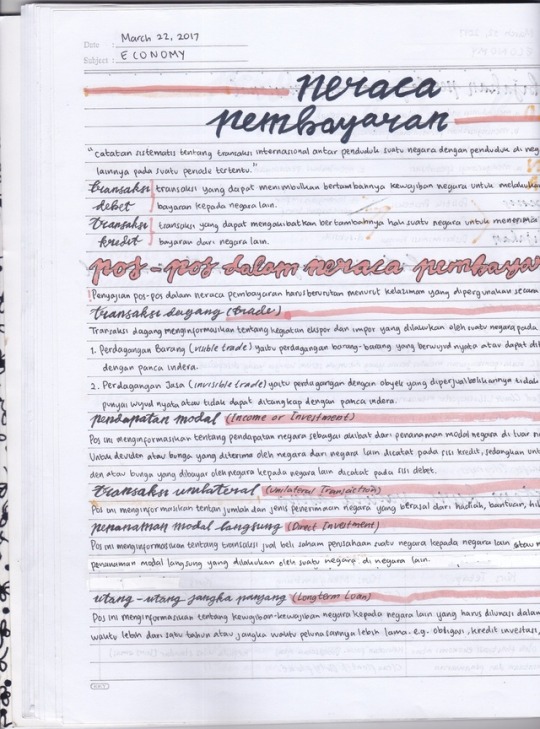 Date : March 22, 2017
Subject : ECONOMY
neraca
pembayaran
"catatan sistematis tentang transaksi internasional antar penduduk suatu negara dengan penduduk di
lainnya pada suatu periode tertentu."
transaksi transaksi yang dapat menimbulkan bertambahnya kewajiban negara untuk
debet bayaran kepada negara lain.
transaksi transaksi yang dapat mengakibatkan bertambahnya hak suatu negara untuk menerima
kredit bayaran dari negara lain.
pos-pos dalam neraca
Penyajian pos-pos dalam neraca pembayaran harus berurutan menurut kelaziman yang dipergunakan secara
transaksi dagang (trade)
Transaksi dagang menginformasikan tentang kegiatan ekspor dan impor yang dilakukan oleh suatu negara pada
1. Perdagangan Barang (visible trade) yaitu perdagangan barang-barang yang berwujud nyata atau dapat
dengan panca indera.
2. Perdagangan Jasa (invisible trade) yaitu perdagangan dengan obyek yang diperjualbelikannya
punyai wujud nyata atau tidak dapat ditangkap dengan panca indera.
pendapatan modal (Income or Investment)
Pos ini menginformasikan tentang pendapatan negara sebagai akibat dari penanaman modal negara di luar
Untuk deviden atau bunga yang diterima oleh negara dari negara lain dicatat pada sisi kredit, sedangkan
den atau bunga yang dibayar oleh negara kepada negara lain dicatat pada sisi debet.
transaksi unilateral (Unilateral Transaction)
Pos ini menginformasikan tentan jumlah dan jenis penerimaan negara yang berasal dari hadiah, bantuan,
penanaman modal langsung (Direct Investment)
Pos ini menginformasikan tentang transaksi jual beli saham perusahaan suatu negara kepada negara lain atau
penanaman modal langsung yang dilakukan oleh suatu negara di negara lain.
utang-utang jangka panjang (Longterm Loan)
Pos ini menginformasikan tentang kewajiban-kewajiban negara kepada negara lain yang harus dilunasi dalam
waktu lebih dari satu tahun atau jangka waktu pelunasannya lebih lama. e.g. obligasi, kredit investasi,